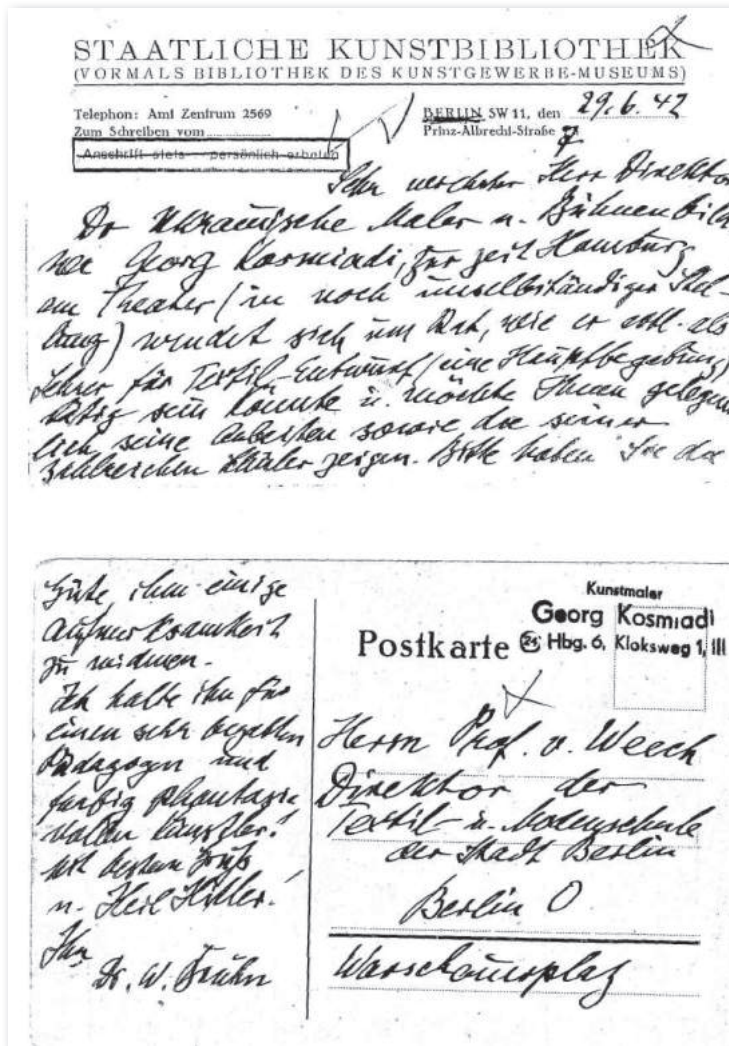 STAATLICHE KUNSTBIBLIOTHEK
(VORMALS BIBLIOTHEK DES KUNSTGEWERBE-MUSEUMS)
Telephon: Amt Zentrum 2569
Zum Schreiben vom
Anschrift stets persönlich erbeten
BERLIN SW 11, den 29.6.42
Prinz-Albrecht-Straße 7
Sehr verehrter Herr Direktor
Der Ukrainische Maler u. Bühnenbild
ner Georg Kosmiadi, zur zeit Hamburg
am Theater (in noch unselbständiger Stel-
lung) wendet sich um Rat, wie er evtl. als
Lehrer für Textil-Entwurf (eine Hauptbegabung)
tätig sein könnte u. möchte Ihnen gelegent
lich seine Arbeiten sowie die seiner
zahlreichen Schüler zeigen. Bitte haben Sie die
Güte ihm einige
Aufmerksamkeit
zu widmen.
Ich halte ihn für
einen sehr begabten
Pädagogen und
farbig phantasie
vollen Künstler!
Mit bestem Gruß
u. Heil Hitler!
Ihr
Dr. W. Bruhn
Postkarte
Kunstmaler
Georg Kosmiadi
24 Hbg. 6, Kloksweg 1, III
Herrn Prof. v. Weech
Direktor der
Textil- u. Modenschule
der Stadt Berlin
Berlin O
Warschauerplatz